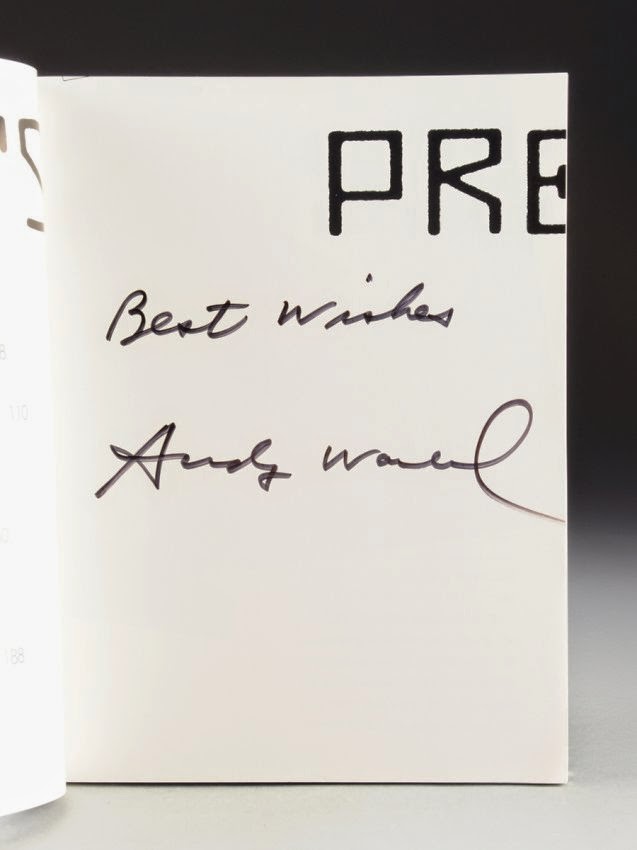 'S
PRE
Best Wishes
Andy Warhol
8
110
0
188